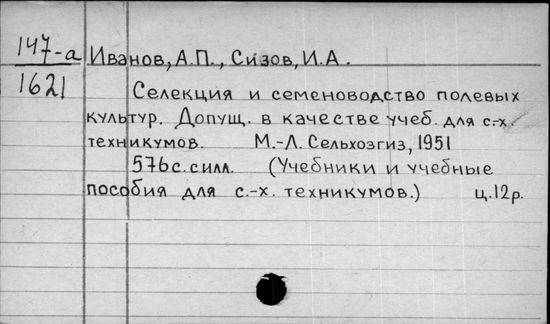 147-а Иванов, А.П., Сизов, И.А.
1621 Селекция и семеноводство полевых
культур. Допущ. в качестве учеб. для с.-х.
техникумов. М.-Л. Сельхозгиз, 1951
576с. с илл. (Учебники и учебные
пособия для с.-х. техникумов.) ц. 12р.